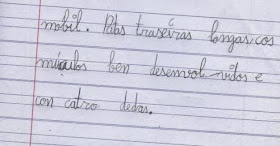 mobil. Patas traseiras longas, cos
músculos ben desenvolvidos e
con catro dedas.